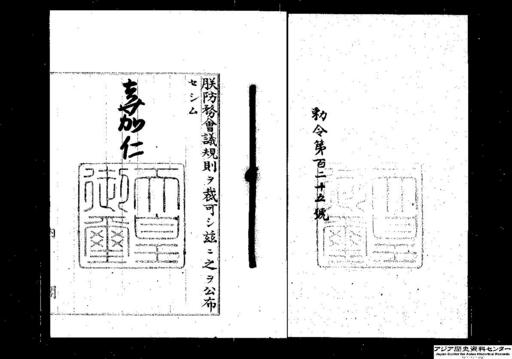 勅令第百二十五號
朕防務會議規則ヲ裁可シ茲ニ之ヲ公布
セシム
嘉仁
天皇
御璽
内閣
アジア歴史資料センター
Japan Center for Asian Historical Records